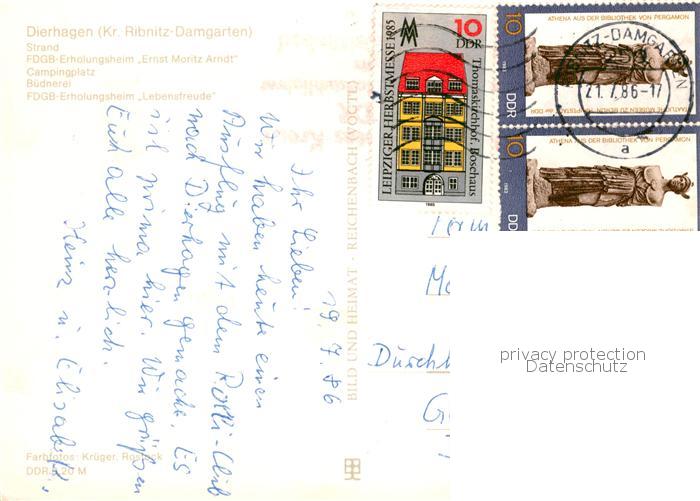 Dierhagen (Kr. Ribnitz-Damgarten)
Strand
FDGB-Erholungsheim „Ernst Moritz Arndt"
Campingplatz
Büdnerei
FDGB-Erholungsheim „Lebensfreude"
19. 7. 86
Ihr Lieben!
Wir haben heute einen
Ausflug mit dem Rolli-Club
nach Dierhagen gemacht. Es
ist prima hier. Wir grüßen
Euch alle herzlich.
Heinz u. Elisabeth.
Farbfotos: Krüger, Rostock
DDR 0,20 M
BILD UND HEIMAT · REICHENBACH (VOGTL)
LEIPZIGER HERBSTMESSE 1985
10
DDR
Thomaskirchhof, Bosehaus
1985
10
ATHENA AUS DER BIBLIOTHEK VON PERGAMON
1983
DDR
STAATLICHE MUSEEN ZU BERLIN · HAUPTSTADT DER DDR
TZ-DAMGARTEN
21.7.86-17
a
10
ATHENA AUS DER BIBLIOTHEK VON PERGAMON
1983
DD
Durchh
privacy protection
Datenschutz